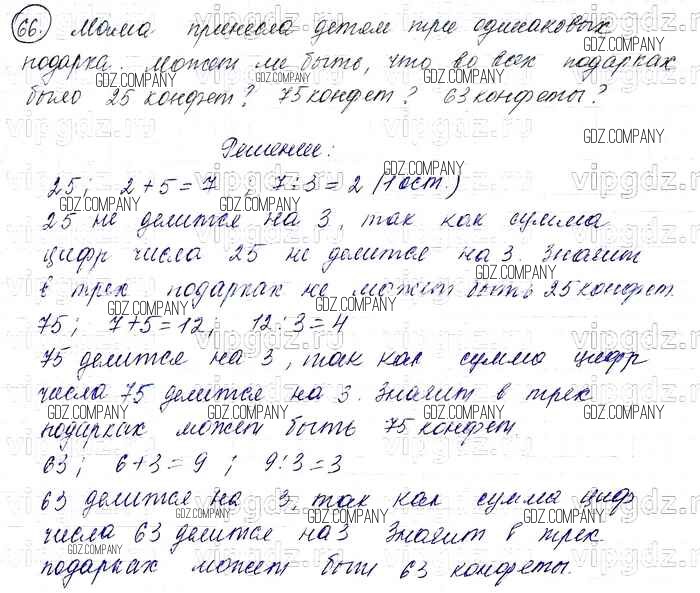 66. Мама принесла детям три одинаковых
подарка. Может ли быть, что во всех подарках
было 25 конфет? 75 конфет? 63 конфеты?
Решение:
25; 2+5=7, 7:3=2 (1 ост.)
25 не делится на 3, так как сумма
цифр числа 25 не делится на 3. Значит
в трех подарках не может быть 25 конфет.
75; 7+5=12; 12:3=4
75 делится на 3, так как сумма цифр
числа 75 делится на 3. Значит в трех
подарках может быть 75 конфет.
63; 6+3=9; 9:3=3
63 делится на 3, так как сумма цифр
числа 63 делится на 3 Значит в трех
подарках может быть 63 конфеты.
GDZ.COMPANY
vipgdz.ru